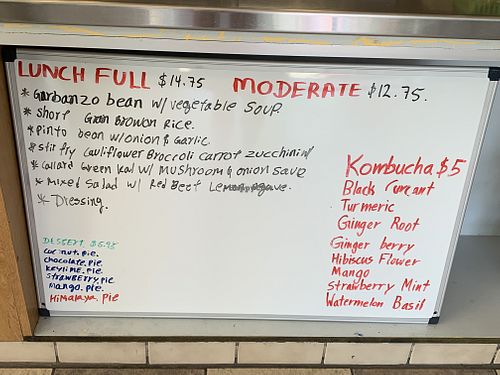 LUNCH FULL $14.75 MODERATE $12.75.
* Garbanzo bean w/ vegetable soup.
* Short Gran Brown Rice.
* Pinto bean w/onion & Garlic.
* Stir fry Cauliflower Broccoli carrot zucchini
* Collard Green Kal w/ Mushroom & onion Saute
* Mixed Salad w/ Red Beet
* Dressing.
Kombucha $5
Black Currant
Turmeric
Ginger Root
Ginger berry
Hibiscus Flower
Mango
Strawberry Mint
Watermelon Basil
DESSERT $6.95
Coconut.pie.
chocolate.pie
KeyLime.pie
Strawberry.pie
Mango.pie.
Himalaya.Pie